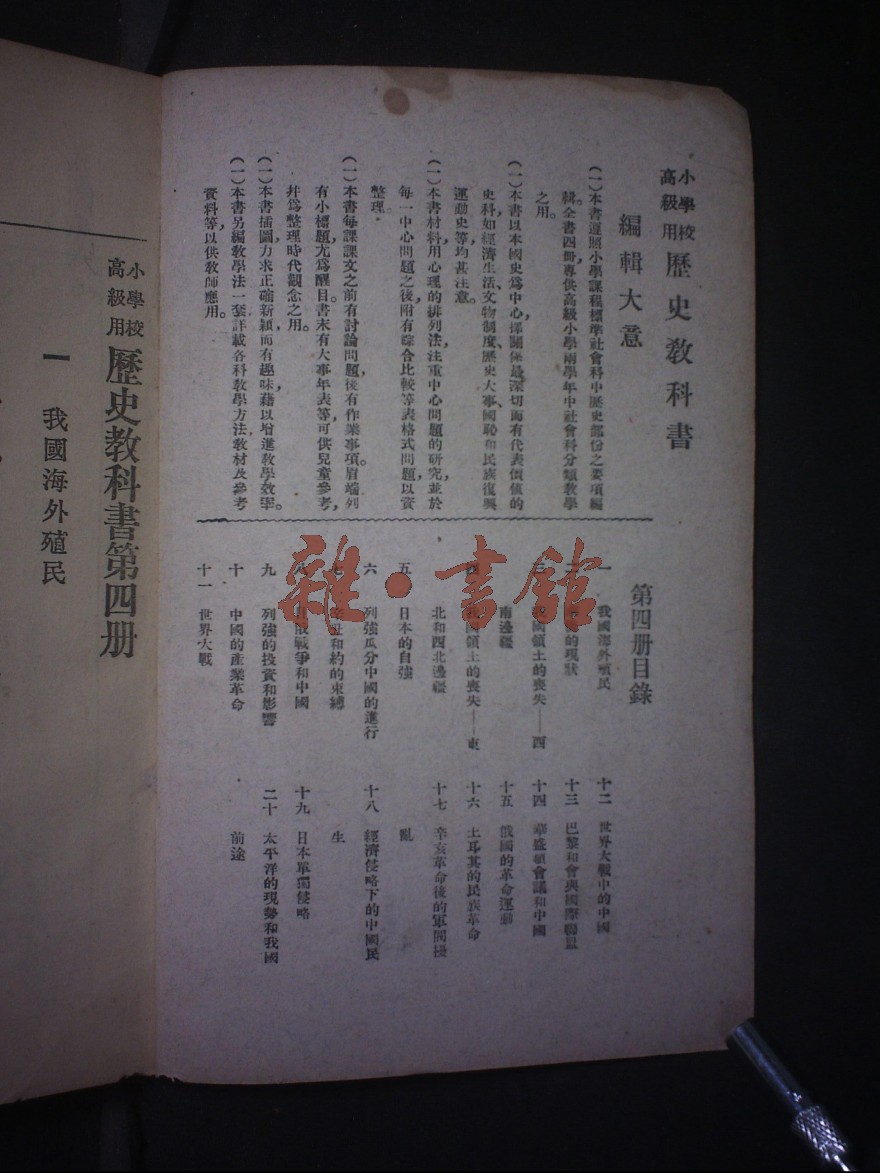 小學校
高級用
歷史教科書
編輯大意
(一)本書遵照小學課程標準社會科中歷史部份之要項編
輯。全書四冊,專供高級小學兩學年中社會科分類教學
之用。
(一)本書以本國史爲中心,擇關係最深切而有代表價値的
史科,如經濟生活、文物制度、歷史大事、國恥和民族復興
運動史等,均甚注意。
(一)本書材料用心理的排列法,注重中心問題的研究,並於
每一中心問題之後,附有綜合比較等表格式問題,以資
整理。
(一)本書每課課文之前有討論問題,後有作業事項。眉端列
有小標題,尤爲醒目。書末有大事年表等,可供兒童參考,
幷爲整理時代觀念之用。
(一)本書插圖力求正確新穎而有趣味,藉以增進教學效率。
(一)本書另編教學法一套,詳載各科教學方法教材及參考
資料等,以供教師應用。
第四冊目錄
一 我國海外殖民
的現狀
我國領土的喪失——西
南邊疆
領土的喪失——東
北和四北邊疆
五 日本的自強
六 列強瓜分中國的進行
辛丑和約的束縛
日俄戰爭和中國
九 列強的投資和影響
十 中國的產業革命
十一 世界大戰
十二 世界大戰中的中國
十三 巴黎和會與國際聯盟
十四 華盛頓會議和中國
十五 俄國的革命運動
十六 土耳其的民族革命
十七 辛亥革命後的軍閥擾
亂
十八 經濟侵略下的中國民
生
十九 日本單獨侵略
二十 太平洋的現勢和我國
前途
小學校
高級用
歷史教科書第四册
一 我國海外殖民
雜·書館